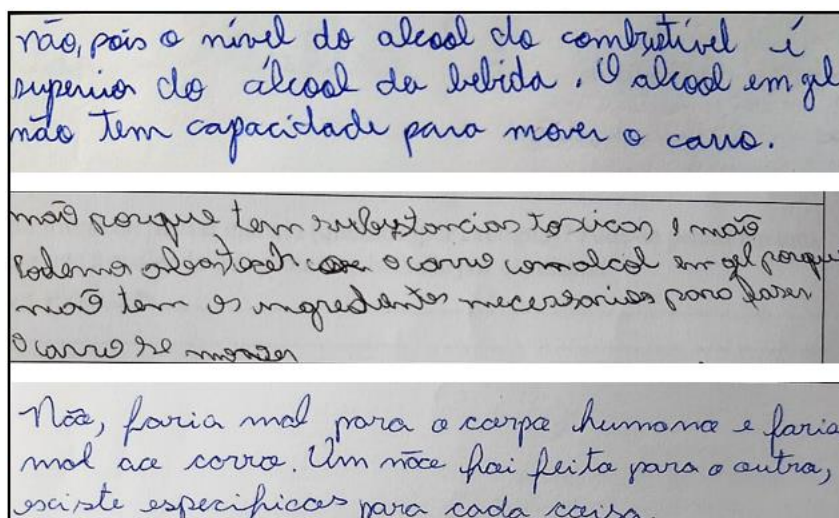 não, pois o nível do alcool do combustível é
superior do álcool da bebida. O alcool em gel
não tem capacidade para mover o carro.
não porque tem substancias toxicas e não
Podemos abastecer o carro com alcol em gel porque
não tem os ingredientes necessarios para faser
o carro se mover
Não, faria mal para o corpo humano e faria
mal ao carro. Um não foi feito para o outro,
existe especificos para cada coisa.